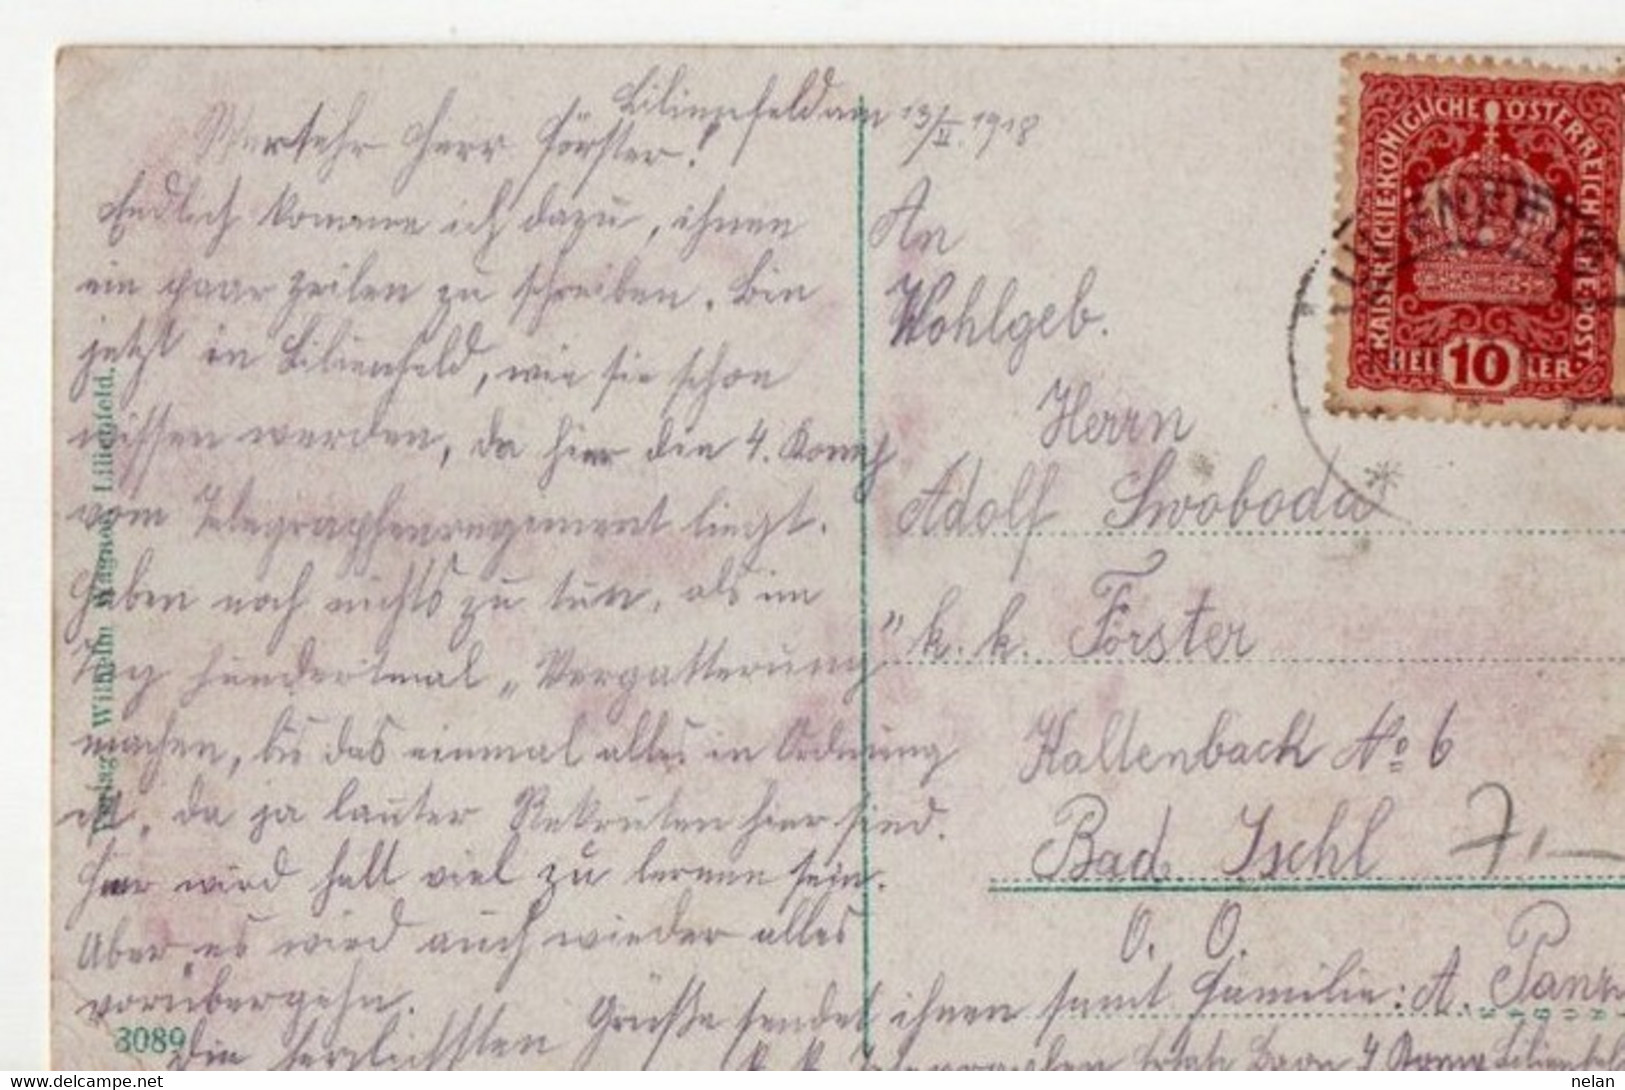 Lilienfeld am 13/II. 1918
Werter Herr Förster!
Endlich komme ich dazu, ihnen
ein paar Zeilen zu schreiben. Bin
jetzt in Lilienfeld, wie sie schon
wissen werden, da hier die 4. Komp
vom Telegraphenregiment liegt.
Haben noch nichts zu tun, als im
Tag hundertmal „Vergatterung"
machen, bis das einmal alles in Ordnung
ist, da ja lauter Rekruten hier sind.
Hier wird halt viel zu lernen sein.
Aber es wird auch wieder alles
vorübergehn.
Die herzlichsten Grüße sendet ihnen samt Familie: A.
An
Wohlgeb.
Herrn
Adolf Swoboda
k. k. Förster
Kaltenbach No 6
Bad Ischl
O. Ö.
7,—
KAISERLICHE·KÖNIGLICHE ÖSTERREICHISCHE POST.
HELLER
10
LILIENFELD
Verlag Wilhelm Wagner, Lilienfeld.
3089
nelan